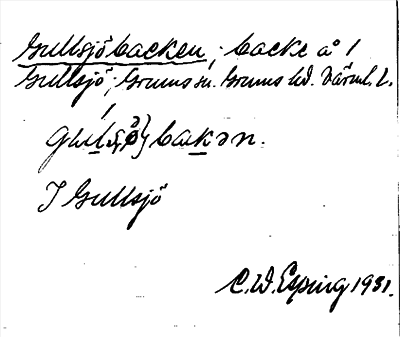 Gullsjöbacken; backe å 1
Gullsjö; Grums sn. Grums hd. Värml. l.
bakən.
I Gullsjö
C.W. Esping 1931.